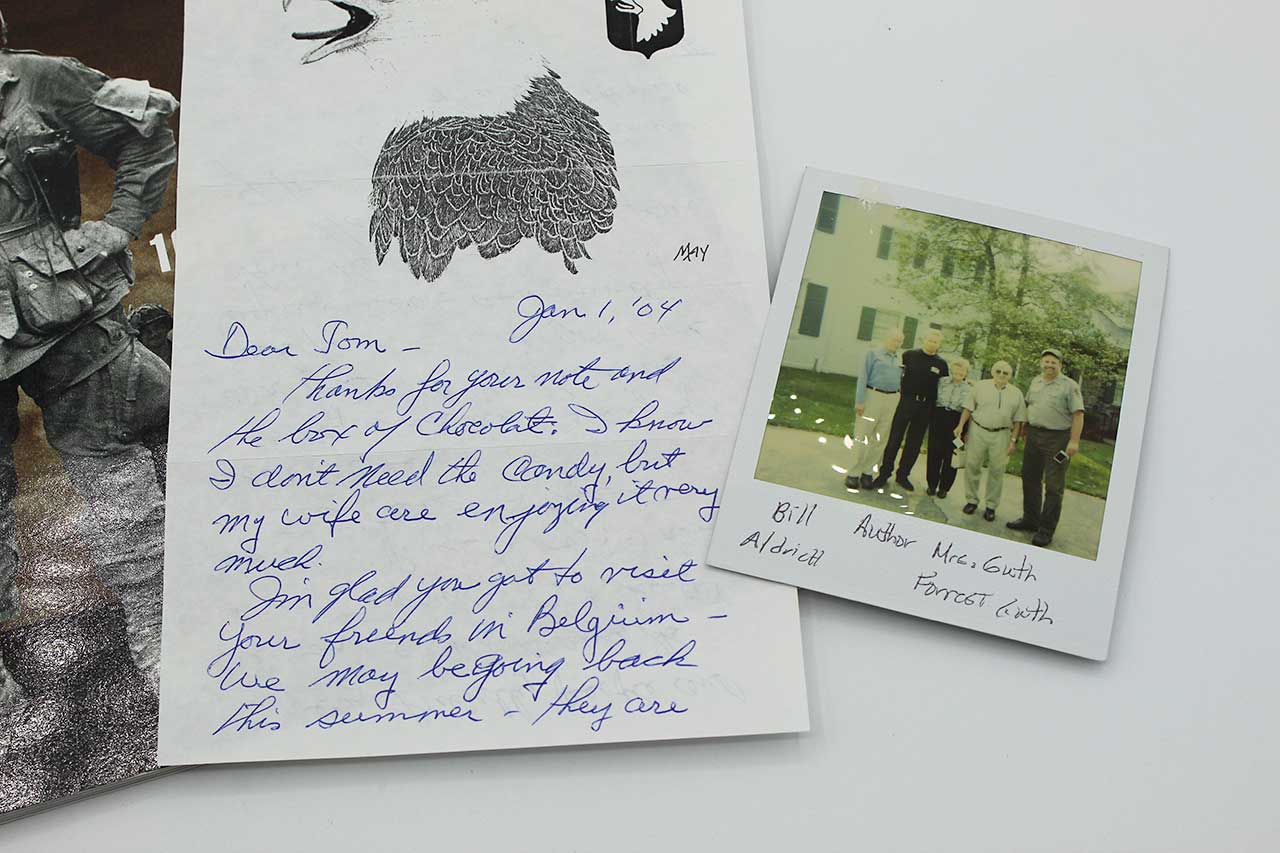 1
MAY
Jan 1, '04
Dear Tom –
Thanks for your note and
the box of Chocolat. I know
I don't need the candy, but
my wife are enjoying it very
much.
I'm glad you got to visit
your friends in Belgium –
We may be going back
this summer – they are
Bill Author Mrs. Guth
Aldrich Forrest Guth